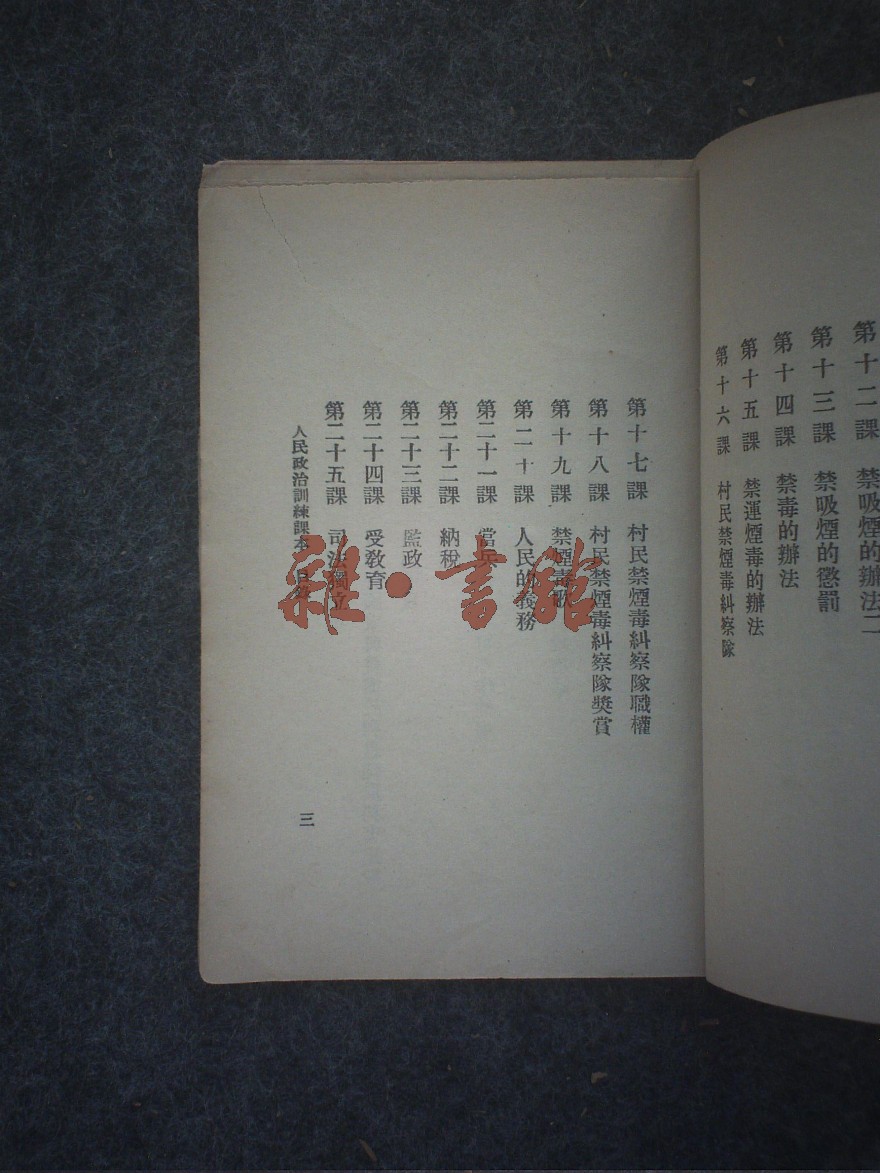 第十二課 禁吸煙的辦法二
第十三課 禁吸煙的懲罰
第十四課 禁毒的辦法
第十五課 禁運煙毒的辦法
第十六課 村民禁煙毒糾察隊
第十七課 村民禁煙毒糾察隊職權
第十八課 村民禁煙毒糾察隊獎賞
第十九課 禁煙毒歌
第二十課 人民的義務
第二十一課 當兵
第二十二課 納稅
第二十三課 監政
第二十四課 受教育
第二十五課 司法獨立
人民政治訓練課本 目錄
三
雜·書館